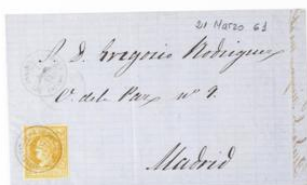 21 Marzo 61
S. D. Gregorio Rodriguez
C. de la Paz nº 9.
Madrid